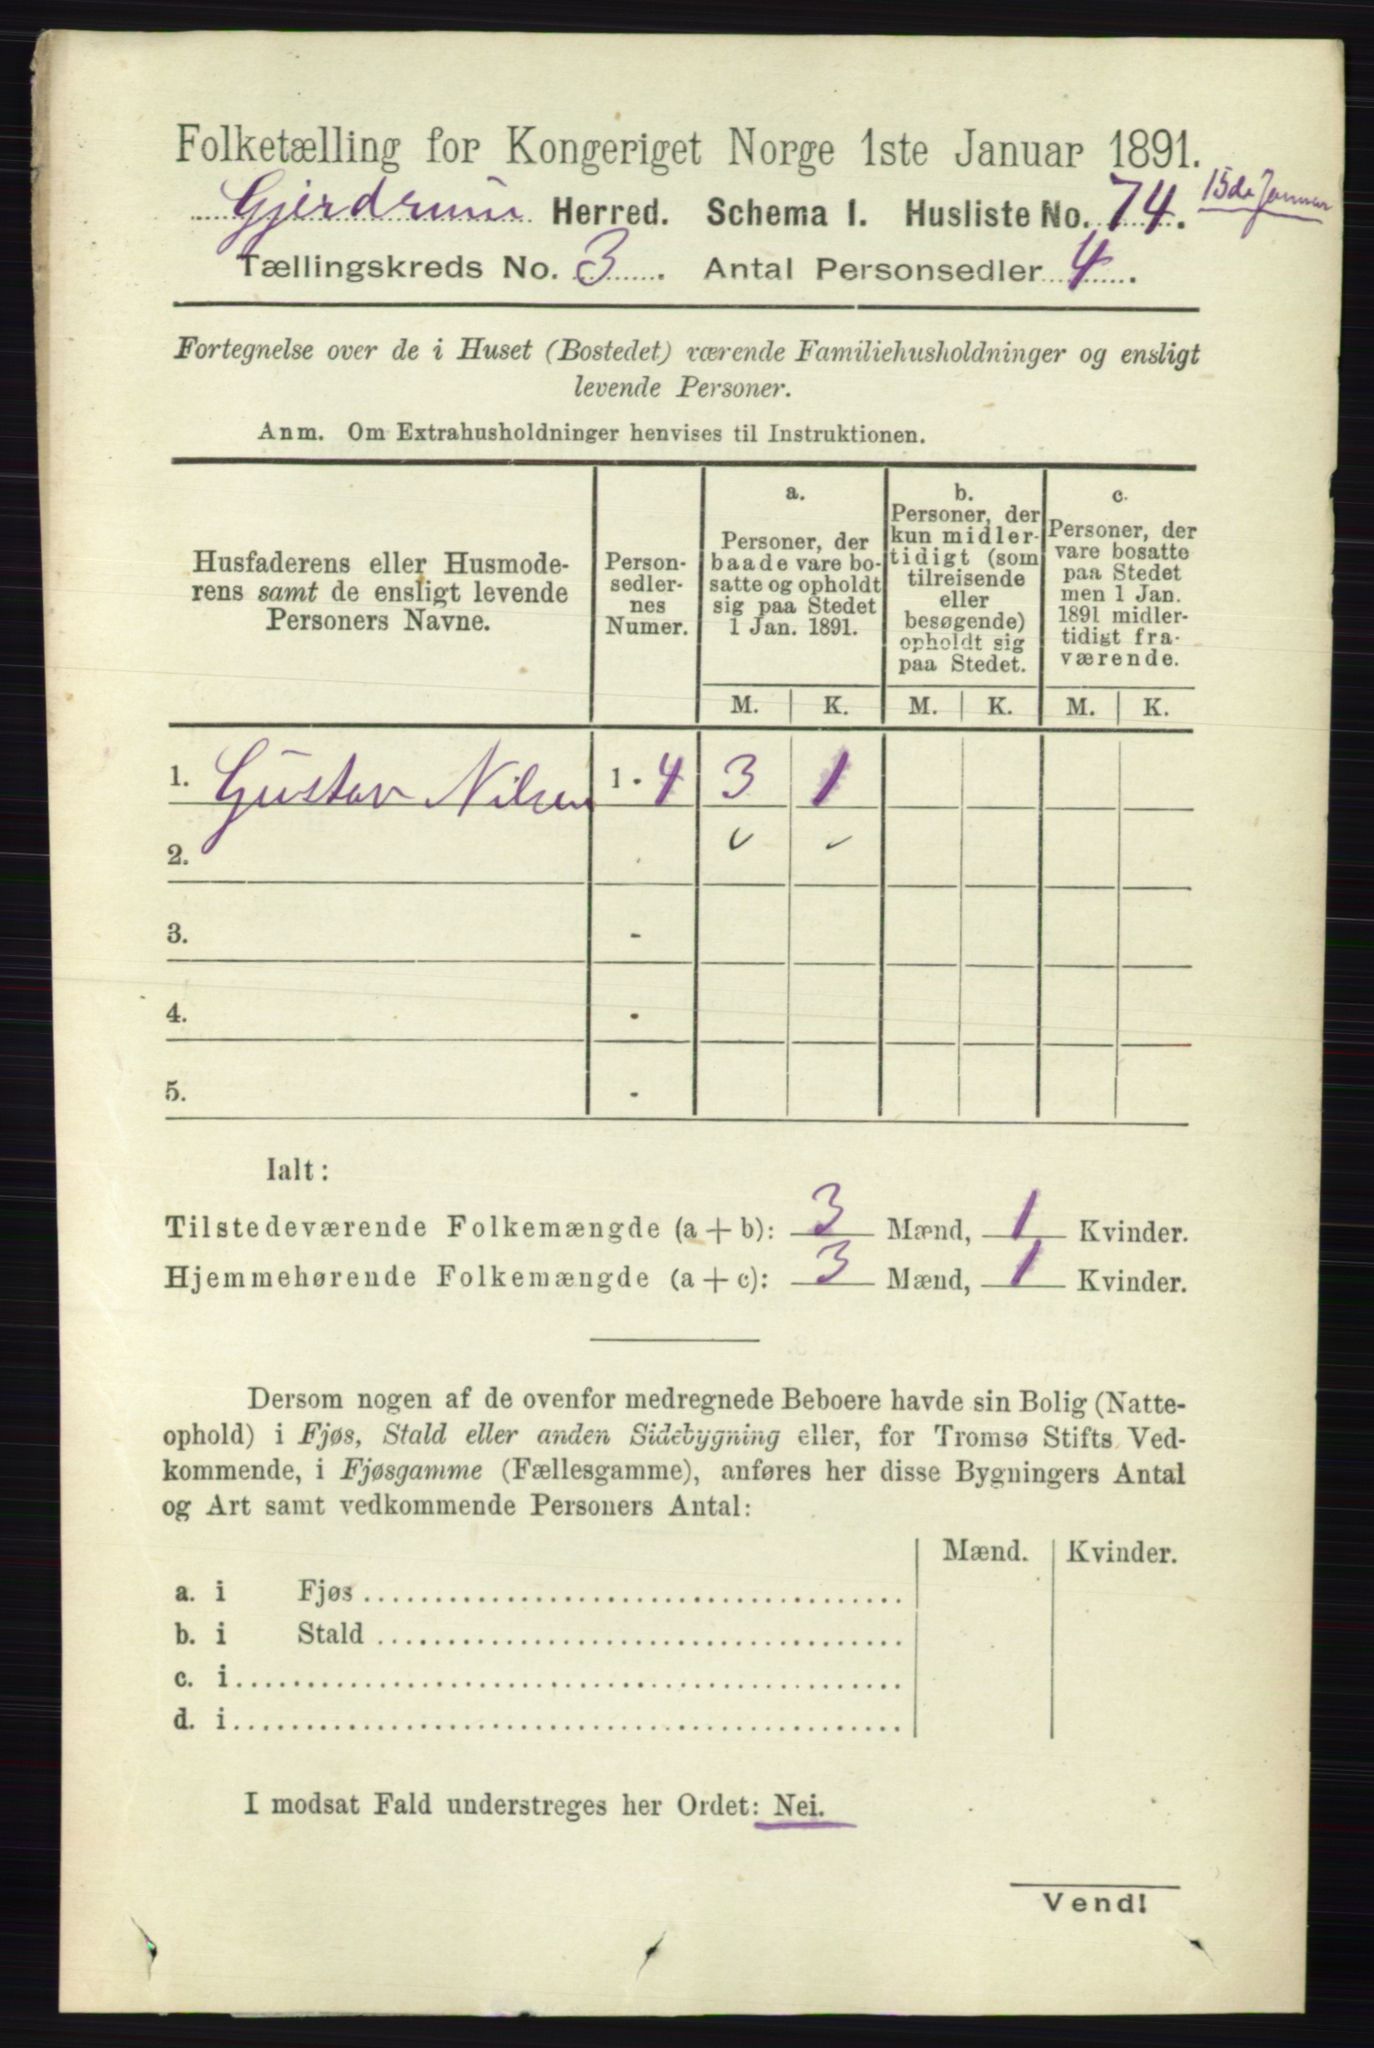 Folketælling for Kongeriget Norge 1ste Januar 1891.
15de Januar
Gjerdrum Herred. Schema I. Husliste No. 74.
Tællingskreds No. 3. Antal Personsedler 4.
Fortegnelse over de i Huset (Bostedet) værende Familiehusholdninger og ensligt
levende Personer.
Anm. Om Extrahusholdninger henvises til Instruktionen.
Husfaderens eller Husmode-
rens samt de ensligt levende
Personers Navne.
Person-
sedler-
nes
Numer.
a.
Personer, der
baade vare bo-
satte og opholdt
sig paa Stedet
1 Jan. 1891.
b.
Personer, der
kun midler-
tidigt (som
tilreisende
eller
besøgende)
opholdt sig
paa Stedet.
c.
Personer, der
vare bosatte
paa Stedet
men 1 Jan.
1891 midler-
tidigt fra-
værende.
M. K. M. K. M. K.
1. Gustav Nilsen 1 - 4 3 1
2.
3. -
4. -
5. -
Ialt:
Tilstedeværende Folkemængde (a + b): 3 Mænd, 1 Kvinder.
Hjemmehørende Folkemængde (a + c): 3 Mænd, 1 Kvinder.
Dersom nogen af de ovenfor medregnede Beboere havde sin Bolig (Natte-
ophold) i Fjøs, Stald eller anden Sidebygning eller, for Tromsø Stifts Ved-
kommende, i Fjøsgamme (Fællesgamme), anføres her disse Bygningers Antal
og Art samt vedkommende Personers Antal:
Mænd. Kvinder.
a. i Fjøs
b. i Stald
c. i
d. i
I modsat Fald understreges her Ordet: Nei.
Vend!